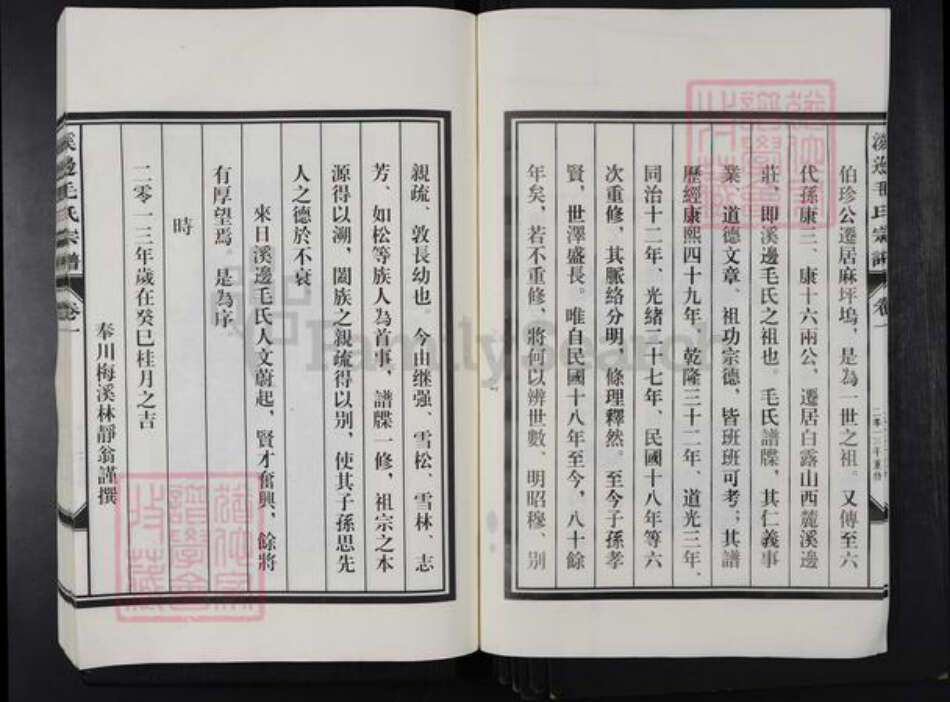 溪邊毛氏宗譜
卷一
二零一三年重修
伯珍公遷居麻坪塢，是為一世之祖。又傳至六
代孫康三、康十六兩公，遷居白露山西麓溪邊
莊，即溪邊毛氏之祖也。毛氏譜牒，其仁義事
業、道德文章、祖功宗德，皆班班可考；其譜
歷經康熙四十九年、乾隆三十二年、道光三年、
同治十二年、光緒二十七年、民國十八年等六
次重修，其脈絡分明，條理釋然。至今子孫孝
賢，世澤盛長。唯自民國十八年至今，八十餘
年矣，若不重修，將何以辨世數、明昭穆、別
親疏、敦長幼也。今由继强、雪松、雪林、志
芳、如松等族人為首事，譜牒一修，祖宗之本
源得以溯，闔族之親疏得以別，使其子孫思先
人之德於不衰
來日溪邊毛氏人文蔚起，賢才奮興，餘將
有厚望焉。是為序
時
二零一三年歲在癸巳桂月之吉
奉川梅溪林靜翁謹撰
溪邊毛氏宗譜
卷一
FamilySearch